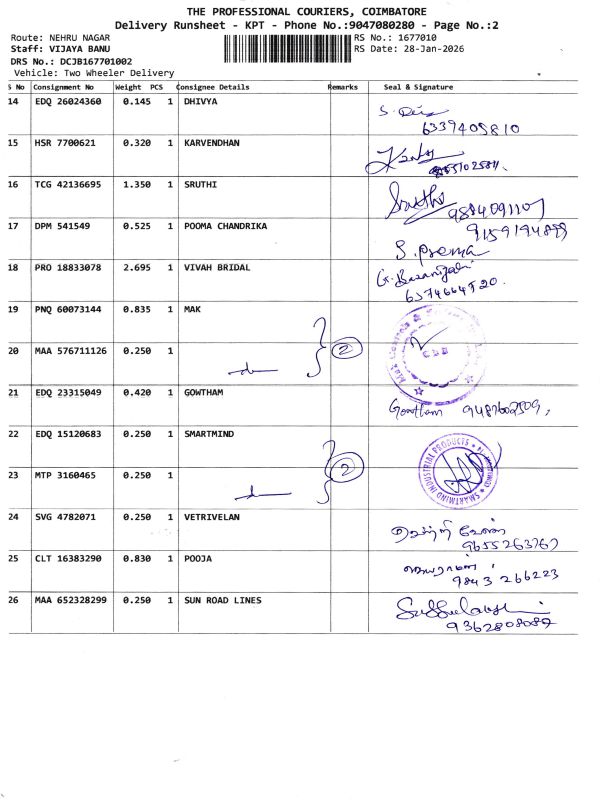 THE PROFESSIONAL COURIERS, COIMBATORE
Delivery Runsheet - KPT - Phone No.:9047080280 - Page No.:2
Route: NEHRU NAGAR RS No.: 1677010
Staff: VIJAYA BANU RS Date: 28-Jan-2026
DRS No.: DCJB167701002
Vehicle: Two Wheeler Delivery
S No Consignment No Weight PCS Consignee Details Remarks Seal & Signature
14 EDQ 26024360 0.145 1 DHIVYA
6339405810
15 HSR 7700621 0.320 1 KARVENDHAN
16 TCG 42136695 1.350 1 SRUTHI Sruthi
9884091107
17 DPM 541549 0.525 1 POOMA CHANDRIKA 9159194899
S. Prema
18 PRO 18833078 2.695 1 VIVAH BRIDAL
19 PNQ 60073144 0.835 1 MAK
2
20 MAA 576711126 0.250 1
21 EDQ 23315049 0.420 1 GOWTHAM Gowtham 9487602509,
22 EDQ 15120683 0.250 1 SMARTMIND SMARTMIND INDUSTRIAL PRODUCTS
2
23 MTP 3160465 0.250 1
24 SVG 4782071 0.250 1 VETRIVELAN வெற்றி வேலன்
9655263767
25 CLT 16383290 0.830 1 POOJA
9843 266223
26 MAA 652328299 0.250 1 SUN ROAD LINES
9362808087